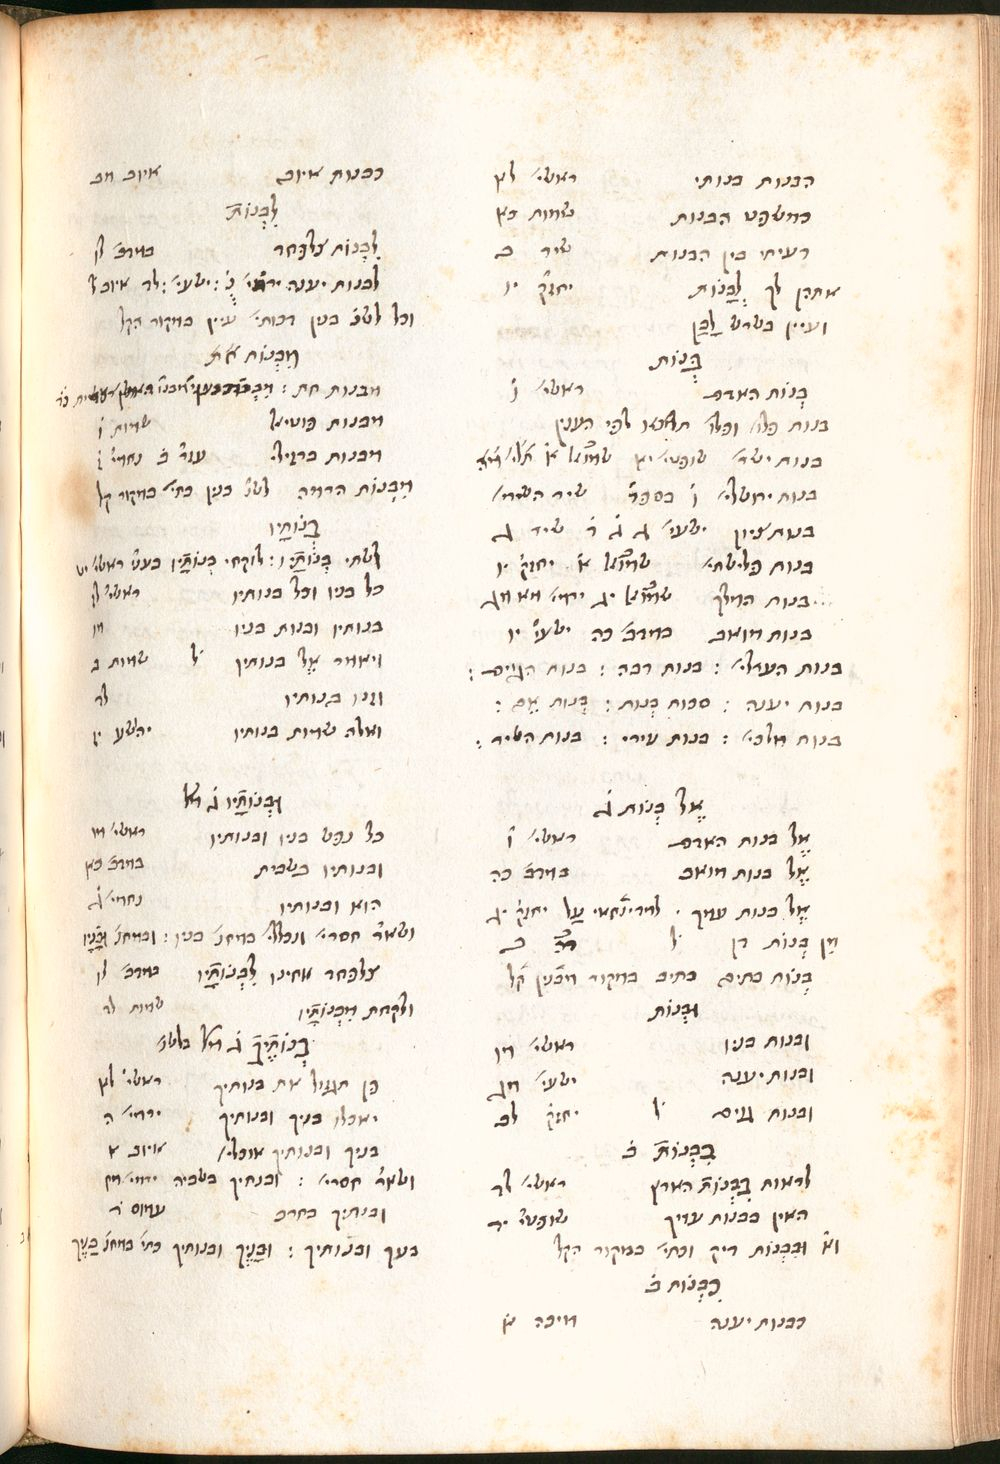 הבנות בנותי ראשי׳ לא
כמשפט הבנות שמות כא
רעיתי בין הבנות שיר ב
אתהן לך לְבָנוֹת יחזק׳ יו
ועיין בשרש לָבַן
בְּנוֹת
בְּנוֹת האדם ראשי׳ ו
בנות פלו׳ וכלו׳ תמצאו לפי הענין
בנות ישר׳ שופטי׳ יא
בנות ירושלי׳ ז בספר שיר השירי׳
בנות ציון ישעי׳ ג ג ד שיר ג
בנות פלישתי׳ שמואל א יחזק׳ יו
בנות המלך שמואל יג ירמי׳ מא מג
בנות מואב במדב׳ כה ישעי׳ יו
בנות הערלי׳ : בנות רבה : בנות הגוים :
בנות יענה : סכות בְּנות : בְּנות אֵם :
בנות מלכי׳ : בנות עירי : בנות השיר :
אֶל בְּנוֹת ג
אֶל בנות האדם ראשי׳ ו
אֶל בנות מואב במדב׳ כה
אֶל בנות עמך . עַל יחזק׳ יג
מִן בְּנוֹת דן ל ב
בְּנוֹת בתים כתיב במקור מבנין קל
וּבְנוֹת
ובנות בניו ראשי׳ מו
ובנות יענה ישעי׳ מג
ובנות גוים ל יחזק׳ לב
בִּבְנוֹת ב
לראות בִּבְנוֹת הארץ ראשי׳ לד
האין בבנות עמיך שופטי׳ יד
וא׳ וּבִבְנוֹת ריק וכתי׳ במקור הקל
כִּבְנוֹת ב
כבנות יענה איכה ד
כבנות איוב איוב מב
לִבְנוֹת
לִבְנוֹת צלפחד במדב׳ לו
לבנות יענה : ישעי׳ : לד איוב ל
וכל לשו׳ בנין רבותי׳ עיין במקור הקל
מִבְּנוֹת את
מבנות חת :
מבנות פוטיאל שמות ו
מבנות ברזילי עזר׳ ב נחמי׳ ז
מִבְנוֹת הרמה לשו׳ בנין כתי׳ במקור קל
בְּנוֹתָיו
לשתי בְּנוֹתָיו : לוקחי בְּנוֹתָיו ראשי׳ יט
כל בניו וכל בנותיו ראשי׳ לז
בנותיו ובנות בניו מו
ויאמר אֶל בנותיו ל שמות ב
וזנו בנותיו לד
ואלה שמות בנותיו יהושע יז
וּבְנוֹתָיו ג מל׳
כל נפש בניו ובנותיו ראשי׳ מו
ובנותיו בשבית במדב׳ כא
הוא ובנותיו נחמי׳ ג
ושאר׳ חסרי׳ ונכללי׳ במחנ׳ בניו : ובמחנ׳ וּבָנָיו
צלפחד אחינו לִבְנוֹתָיו במדב׳ לו
ולקחת מִבְּנוֹתָיו שמות לד
בְּנוֹתֶיךָ ג מל׳ בלשו׳
כן תגזול את בנותיך ראשי׳ לא
יאכלו בניך ובנותיך ירמי׳ ה
בניך ובנותיך אוכלי׳ איוב א
ושאר׳ חסרי׳ : ובנתיך בשביה ירמי׳ מח
ובנתיך בחרב עמוס ז
בעך ובנותיך : וּבָנֶיךָ ובנותיך כתי׳ במחנ׳ בָּנֶיךָ